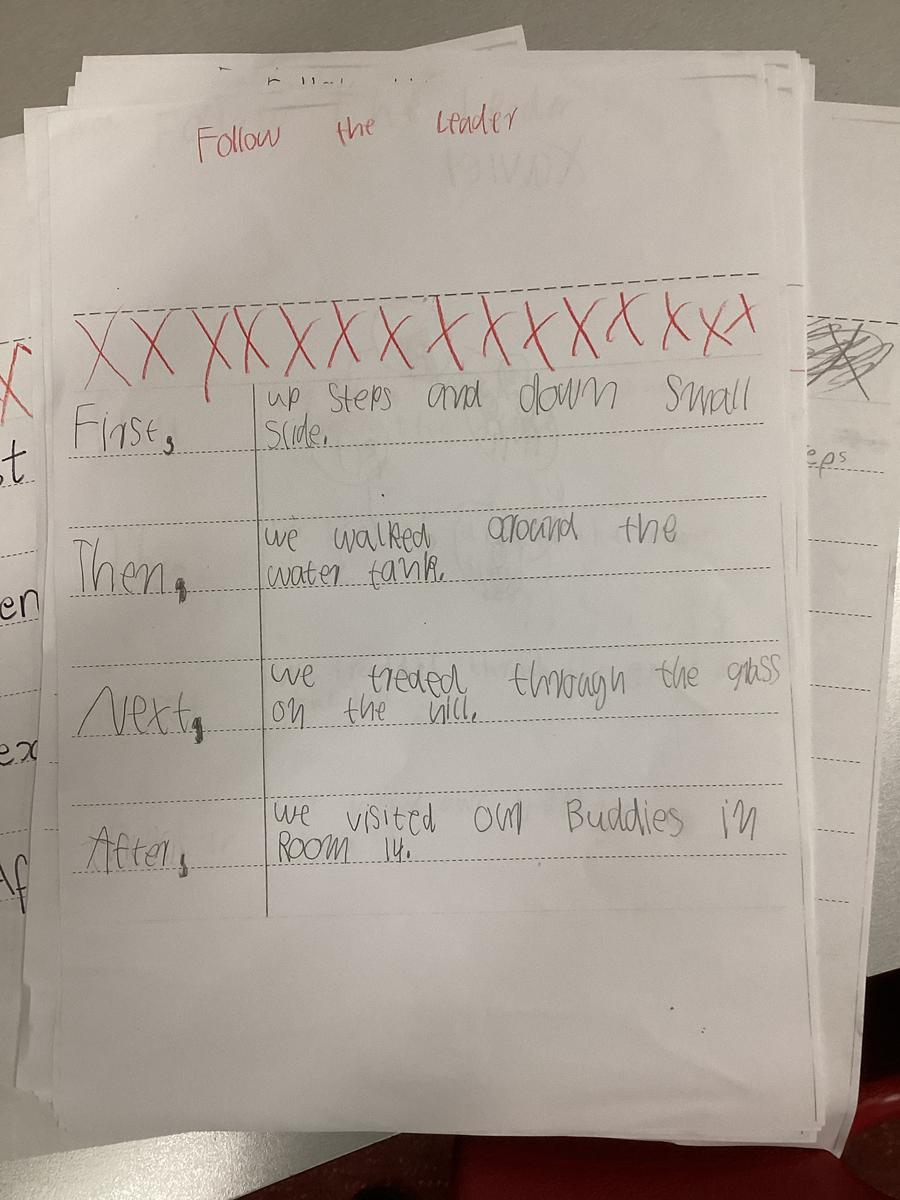 Follow the Leader
X X X X X X X X X X X X X X X
First,
up steps and down small
slide.
Then,
we walked around the
water tank.
Next,
we treaed through the grass
on the hill.
After,
we visited our Buddies in
Room 14.
eps
st
en
ex
Af